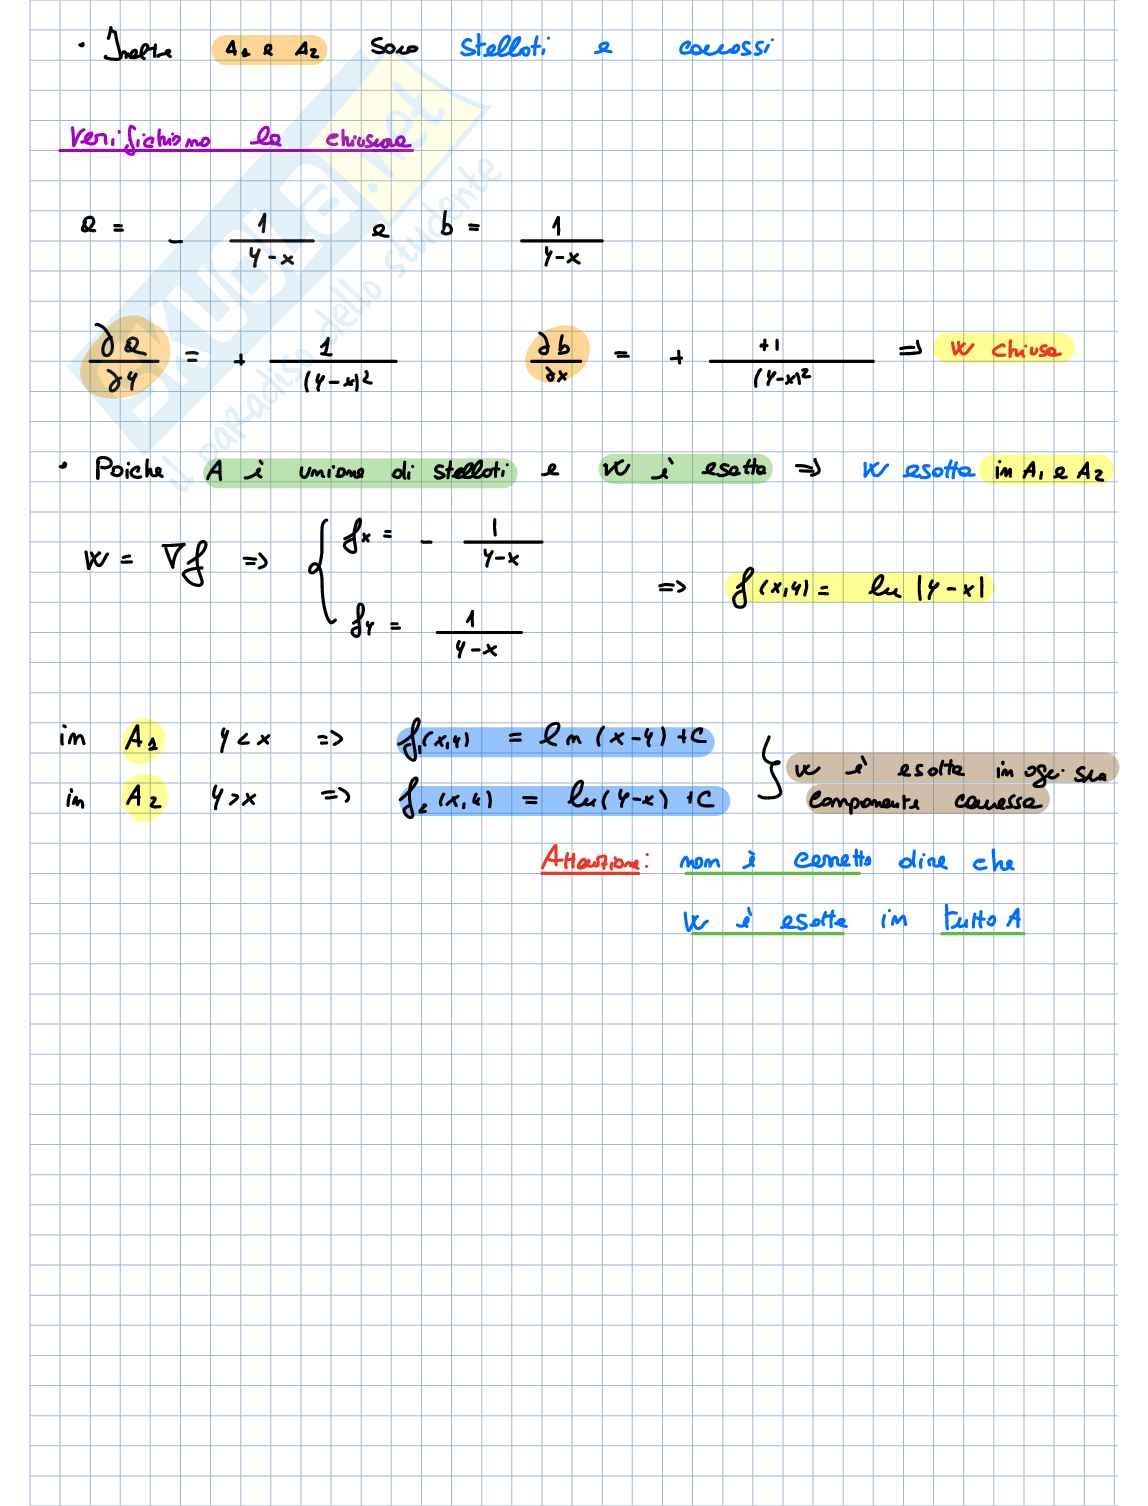 • Inoltre A₁ e A₂ sono stellati e connessi
Verifichiamo la chiusura
a = - 1/(y-x) e b = 1/(y-x)
∂a/∂y = + 1/(y-x)² ∂b/∂x = + +1/(y-x)² => w chiusa
• Poiche A è unione di stellati e w è esatta => w esatta in A₁ e A₂
w = ∇f => { fx = - 1/(y-x)
fy = 1/(y-x)
=> f(x,y) = ln |y-x|
in A₁ y<x => f₁(x,y) = ln (x-y) +C
in A₂ y>x => f₂(x,y) = ln(y-x) +C
} w è esatta in ogni sua
componente connessa
Attenzione: non è corretto dire che
w è esatta in tutto A
SKUOLA.net
il paradiso dello studente